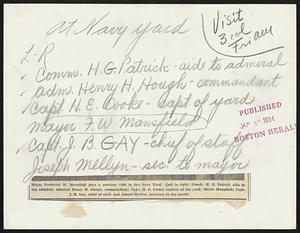 At Navy Yard
Visit
3rd
L-R
Comm. H.G. Patrick - aide to admiral
Adm. Henry H. Hough - commandant
Capt H. E. Cooke - Capt of yard
Mayor F. W. Mansfield
PUBLISHED
JAN 5 1934
BOSTON HERALD
Capt. J. B. GAY - chief of staff
Joseph Mellyn - sec. to mayor
Mayor Frederick W. Mansfield pays a courtesy visit to the Navy Yard. Left to right: Comdr. H. G. Patrick, aide to
the admiral; Admiral Henry H. Hough, commandant; Capt. H. E. Cooke, captain of the yard; Mayor Mansfield; Capt.
J. B. Gay, chief of staff, and Joseph Mellyn, secretary to the mayor.